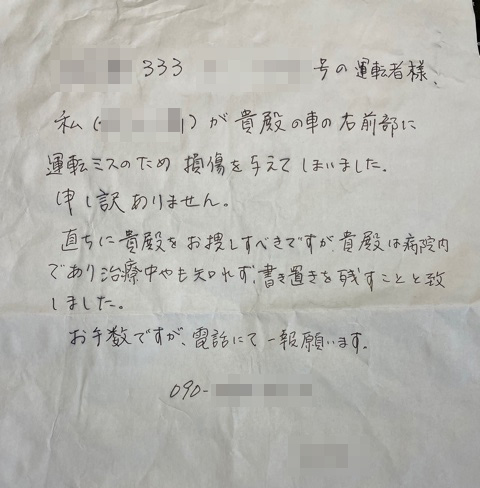 333 号の運転者様、
私()が貴殿の車の右前部に
運転ミスのため損傷を与えてしまいました。
申し訳ありません。
直ちに貴殿をお捜しすべきですが、貴殿は病院内
であり治療中やも知れず、書き置きを残すことと致
しました。
お手数ですが、電話にて一報願います。
090-